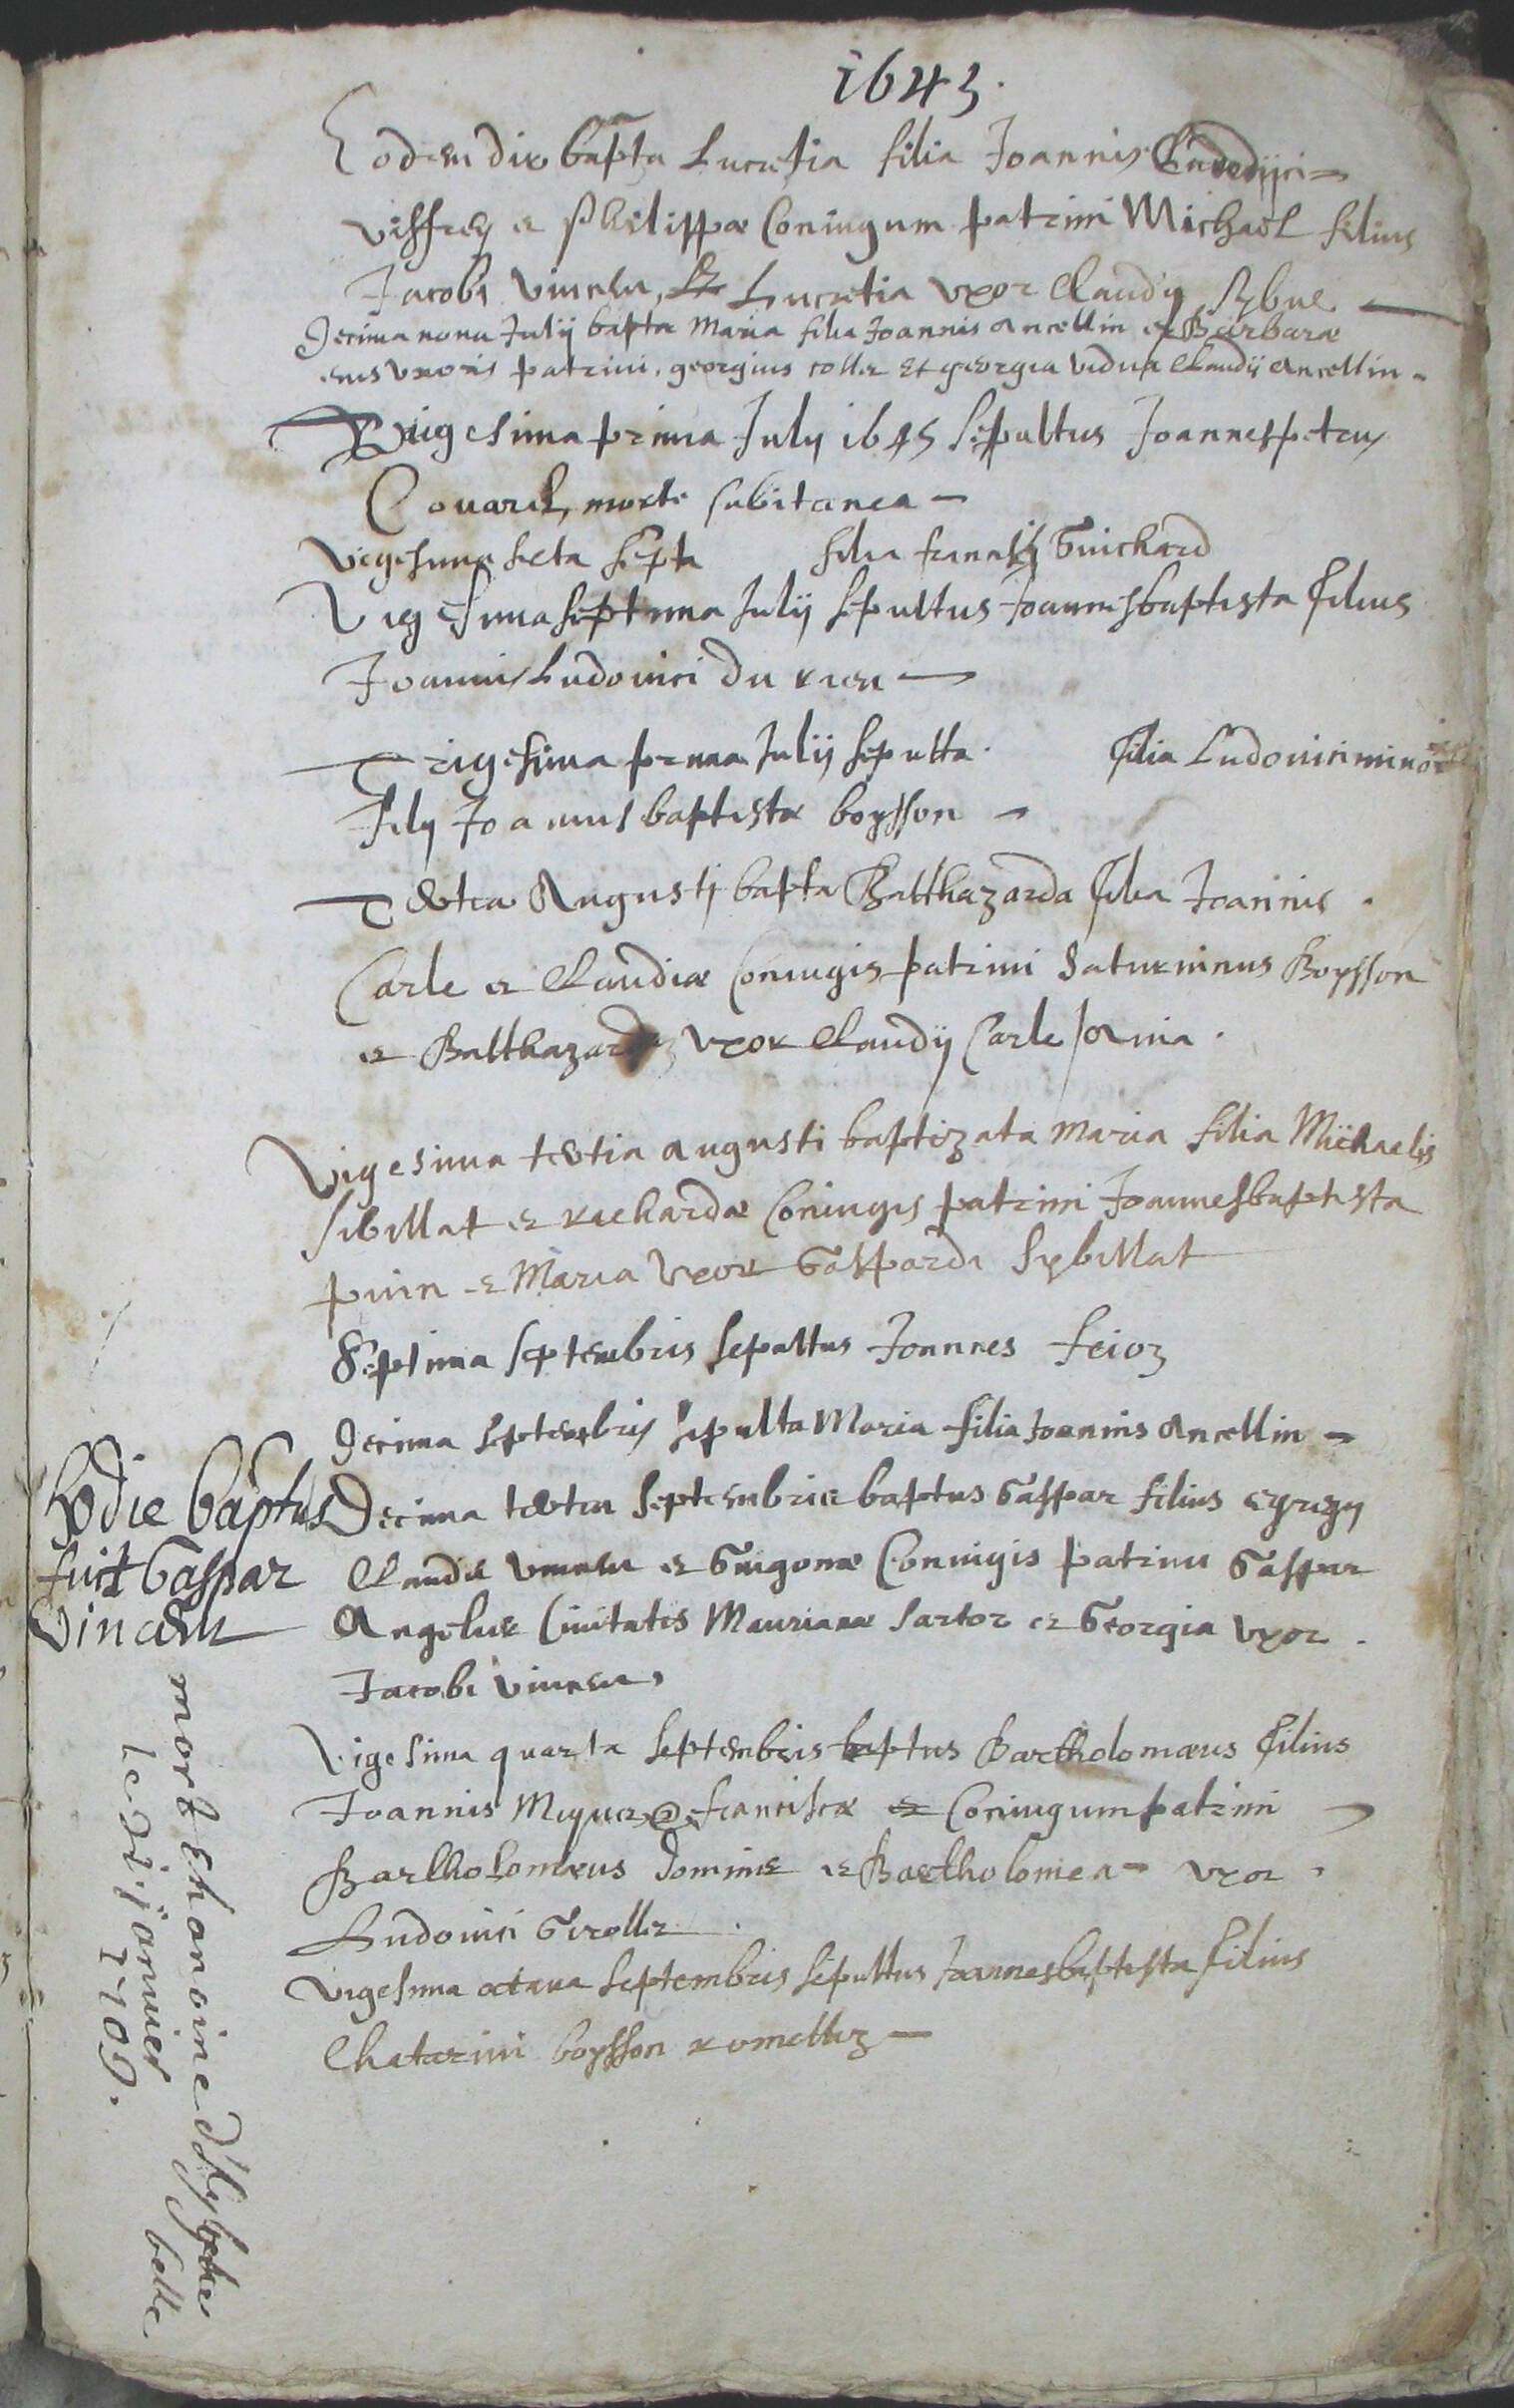 1643.
Eodem die bapta Lucretia filia Joannis
Viffrey et Philippæ Coniugum patrini Michael filius
Jacobi Vineu, Lucretia Vxor Claudij Sybue
Decima nona Julij bapta Maria filia Joannis Ancellin et Barbaræ
eius vxoris patrini, georgius collet et georgia vidua Claudij Ancellin
Vigesima prima July 1645 sepultus Joannespetrus
Couarel, morte subitanea
Vigesima sexta septa filia francisci Guichard
Vigesima septima Julij sepultus Joannesbaptista filius
Joannis Ludovici du rieu
Trigesima prima Julij sepulta filia Ludovici minoris
filij Joannisbaptistæ boysson
Tertia Augusti bapta Balthazarda filia Joannis
Carle et Claudiæ Coniugis patrini Saturninus Boysson
et Balthazarda vxor Claudij Carle
Vigesima tertia augusti baptizata Maria filia Michaelis
Sibillat et richardæ Coniugis patrini Joannesbaptista
puin et Maria Vxor Gaspardi Sybillat
Septima septembris sepultus Joannes feioz
Decima septembris sepulta Maria filia Joannis Ancellin
Decima tertia septembris baptus Gaspar filius egregij
Claudii Vineu et Guigonæ Coniugis patrini Gaspar
Angelus Civitatis Maurianæ sartor et Georgia vxor
Jacobi Vineu
Vigesima quarta septembris baptus Bartholomæus filius
Joannis Miquez et franciscæ Coniugum patrini
Bartholomæus Domine et Bartholomea vxor
Ludovici Grollez
Vigesima octava septembris sepultus Joannesbaptista filius
Chatarini boysson romettiz
hodie baptus
fuit Gaspar
Vineu
mort Chanoine d'Ayguebelle
le vi. janvier
1709.